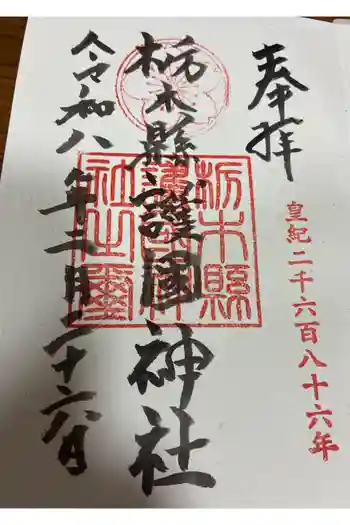 奉拝
皇紀二千六百八十六年
栃木縣護國神社
栃木縣護國神社之璽
令和八年三月二十六日